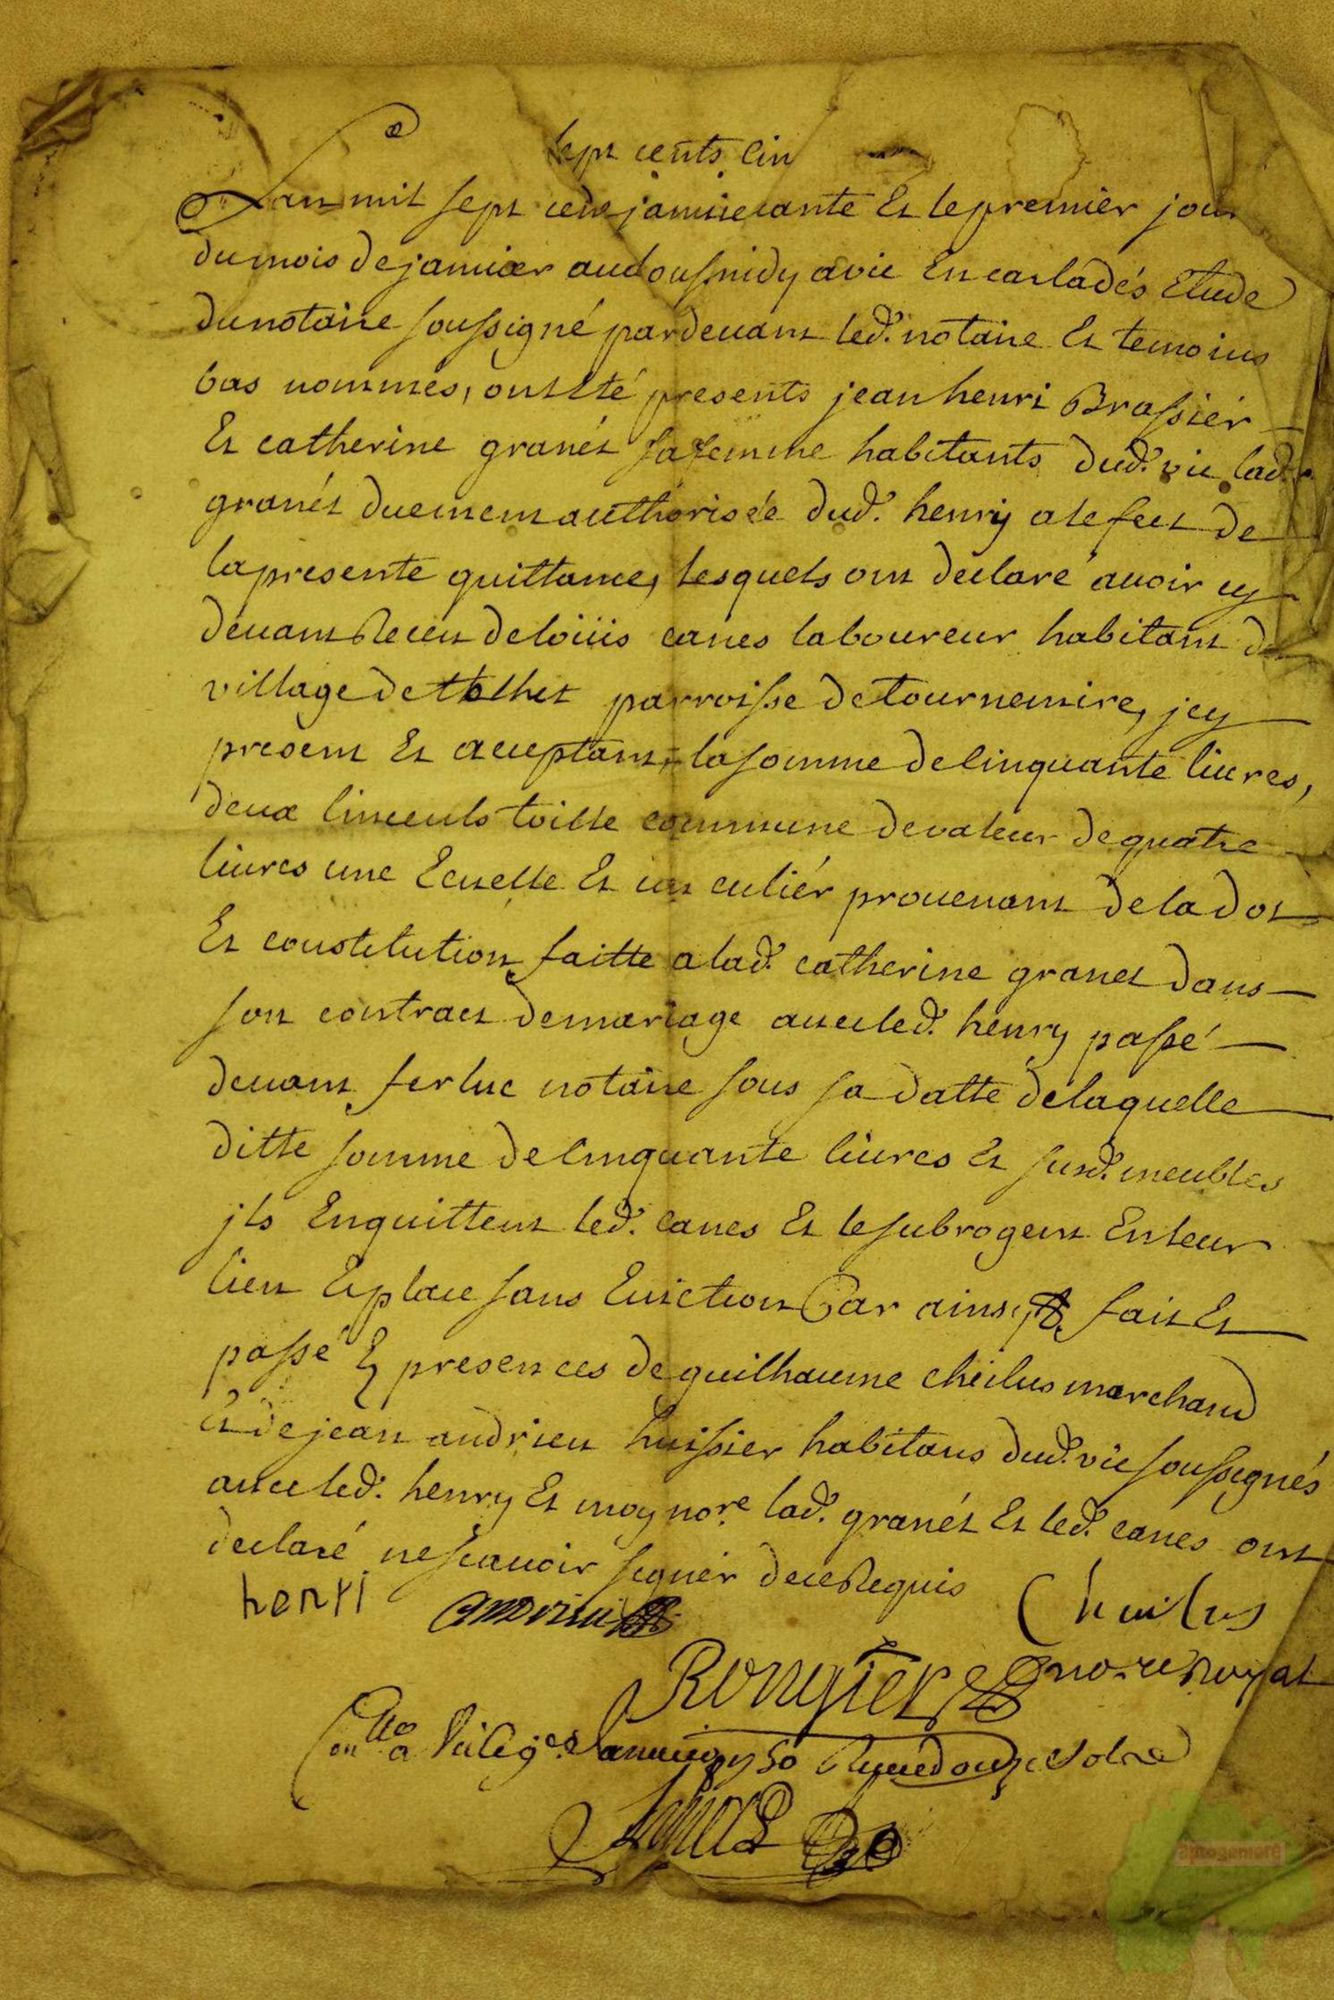 sept cents cin
L'an mil sept cens janvie quante Et le premier jour
du mois de janvier avdous midy a vic En carladés Etude
du notaire soussigné pardevant led. notaire Et temoins
bas nommés, ont été presents jean henri Brassiér
Et catherine granét sa femme habitants dud. vic lad.
granét duement authorisée dud. henry a lefect de
la presente quittance, lesquels ont déclaré avoir cy
devant Receu de loüis canes laboureur habitant du
village de tolhet parroisse de tournemire, jcy
present Et acceptant, la somme de cinquante livres,
deux linceuls toille commune de valeur de quatre
livres une Ecuelle Et un culiér provenant de la dot
Et constitution faitte a lad. catherine granet dans
son contract de mariage avec led. henry passé
devant ferluc notaire sous sa datte de laquelle
ditte somme de cinquante livres Et susd. meubles
jls Enquittent led. canes Et le subrogent En leur
lieu Et place sans Eviction Car ainsi fait Et
passé En presences de guilhaume cheilus marchand
Et de jean andrieu huissier habitans dud. vic soussignés
avec led. henry Et moy nore. lad. granét Et led. canes ont
declaré ne scavoir signér de ce Requis
henri andrieu Cheilus
Rougier nore Royal
Conlle a vic le janvier 1750 Reçu douze sols